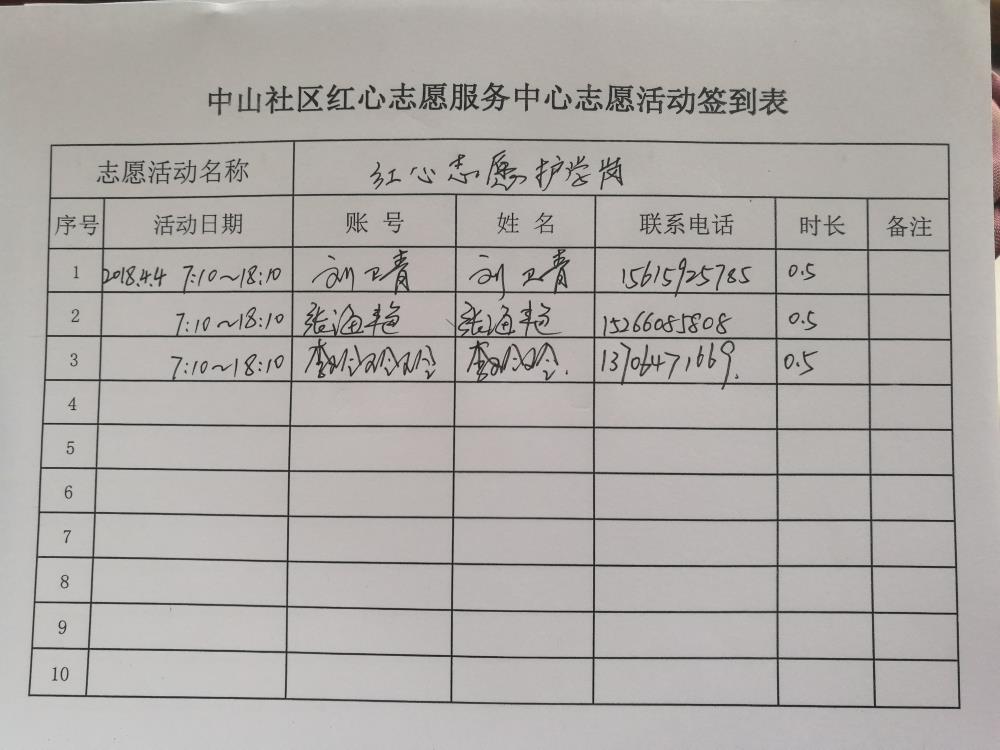 中山社区红心志愿服务中心志愿活动签到表
志愿活动名称 红心志愿护学岗
序号 活动日期 账号 姓名 联系电话 时长 备注
1 2018.4.4 7:10～18:10 刘卫青 刘卫青 15615925785 0.5
2 7:10～18:10 张海艳 张海艳 15266085808 0.5
3 7:10～18:10 李玲玲玲 李玲玲. 13706471669. 0.5
4
5
6
7
8
9
10